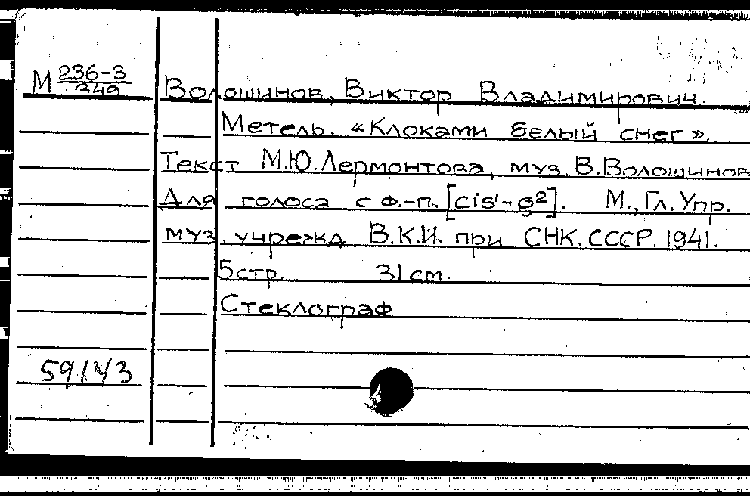 М 236-3/349
Волошинов, Виктор Владимирович.
Метель. «Клоками белый снег».
Текст М.Ю.Лермонтова, муз. В.Волошинов
Для голоса с ф.-п. [cis¹-g²]. М., Гл. Упр.
муз. учрежд. В.К.И. при СНК. СССР. 1941.
5 стр. 31 см.
Стеклограф
59143